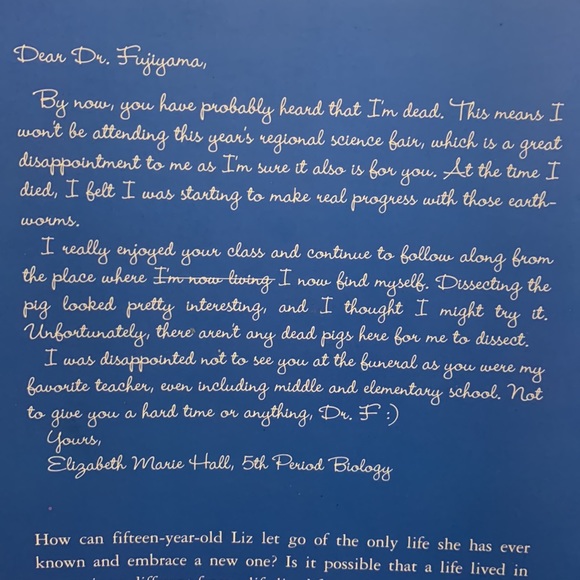 Dear Dr. Fujiyama,
By now, you have probably heard that I'm dead. This means I
won't be attending this year's regional science fair, which is a great
disappointment to me as I'm sure it also is for you. At the time I
died, I felt I was starting to make real progress with those earth-
worms.
I really enjoyed your class and continue to follow along from
the place where I'm now living I now find myself. Dissecting the
pig looked pretty interesting, and I thought I might try it.
Unfortunately, there aren't any dead pigs here for me to dissect.
I was disappointed not to see you at the funeral as you were my
favorite teacher, even including middle and elementary school. Not
to give you a hard time or anything, Dr. F :)
Yours,
Elizabeth Marie Hall, 5th Period Biology
How can fifteen-year-old Liz let go of the only life she has ever
known and embrace a new one? Is it possible that a life lived in